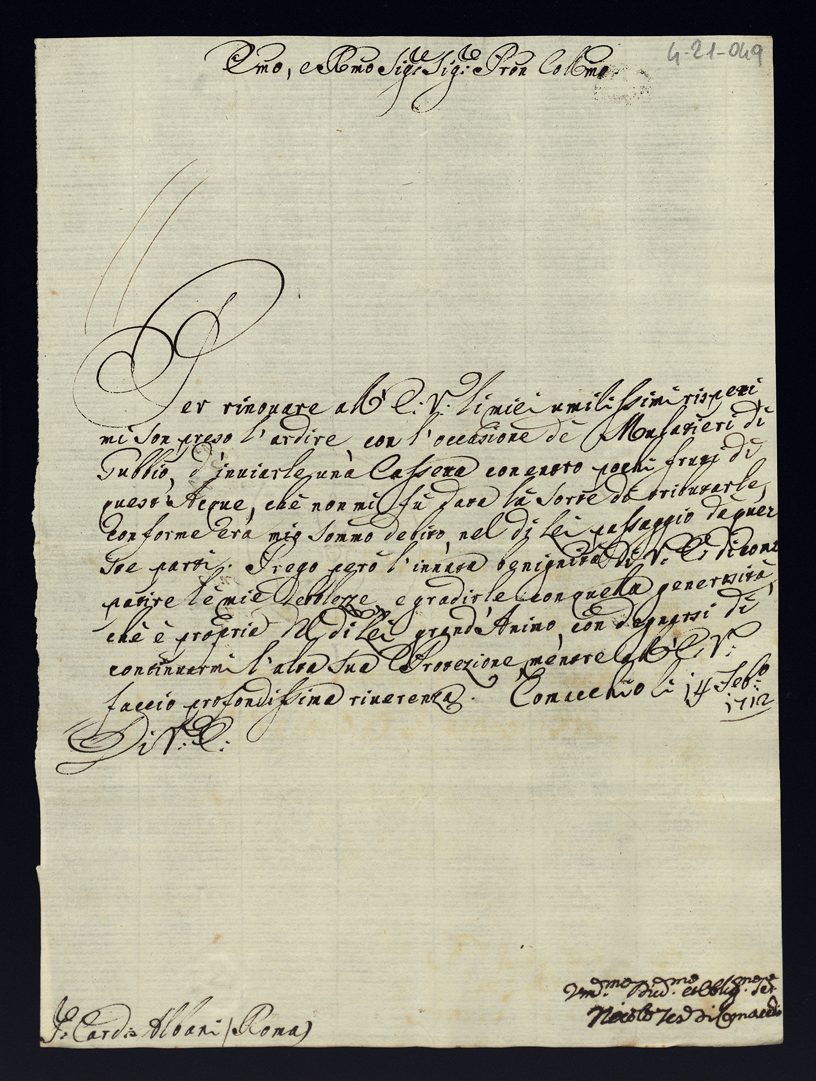 4-21-049
Emo, e Rmo Sig.re Sig.re Pron Colmo
Per rinovare all' E: V: li miei umilissimi rispetti
mi son preso l'ardire con l'occasione dè Mulattieri di
Gubbio, d'inviarle unà Cassetta con entro pochi frutti di
queste Acque, chè non mi fù data la sorte di tributarle,
conforme era mio sommo debito, nel di lei passaggio da quer
ste parti. Prego però l'innata benignità di V: E: di com
patire lè mie debolezze, e gradirle con quella generosità,
chè è propria del di lei grand'Animo, con degnarsi di
continuarmi l'alta sua Protezione, mentre all' E: V:
faccio profondissima riverenza. Comacchio li 14 Febo
1712
Di V: E:
S: Card: Albani (Roma)
Vmo Div.mo et Obblig. Ser
Nicolò Ves di Comacchio